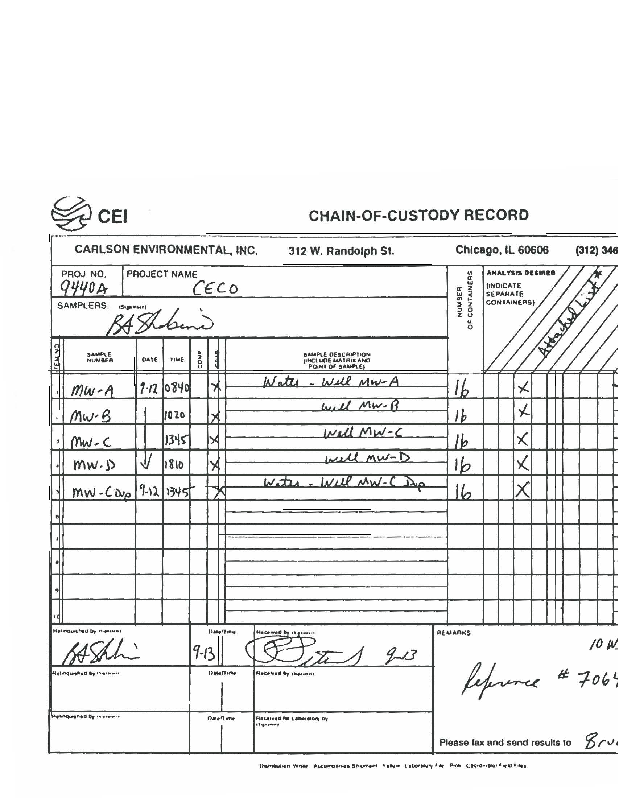 CEI
CHAIN-OF-CUSTODY RECORD
CARLSON ENVIRONMENTAL, INC. 312 W. Randolph St. Chicago, IL 60606 (312) 346
PROJ NO. PROJECT NAME
9440A CECO
SAMPLERS (Signature)
NUMBER OF CONTAINERS
ANALYSIS DESIRED
(INDICATE
SEPARATE
CONTAINERS)
Attached List *
ITEM NO. SAMPLE NUMBER DATE TIME COMP GRAB SAMPLE DESCRIPTION (INCLUDE MATRIX AND POINT OF SAMPLE)
1 MW-A 9-12 0840 X Water - Well MW-A 16 X
MW-B 1020 X Well MW-B 16 X
MW-C 1345 X Well MW-C 16 X
4 MW-D 1810 X Well MW-D 16 X
MW-C Dup 9-12 1345 X Water - Well MW-C Dup 16 X
10
Relinquished by (Signature) Date/Time Received by (Signature) REMARKS
9-13 9-13
10 W
Reference # 7064
Relinquished by (Signature) Date/Time Received by (Signature)
Relinquished by (Signature) Date/Time Received for Laboratory by (Signature)
Please fax and send results to Bru